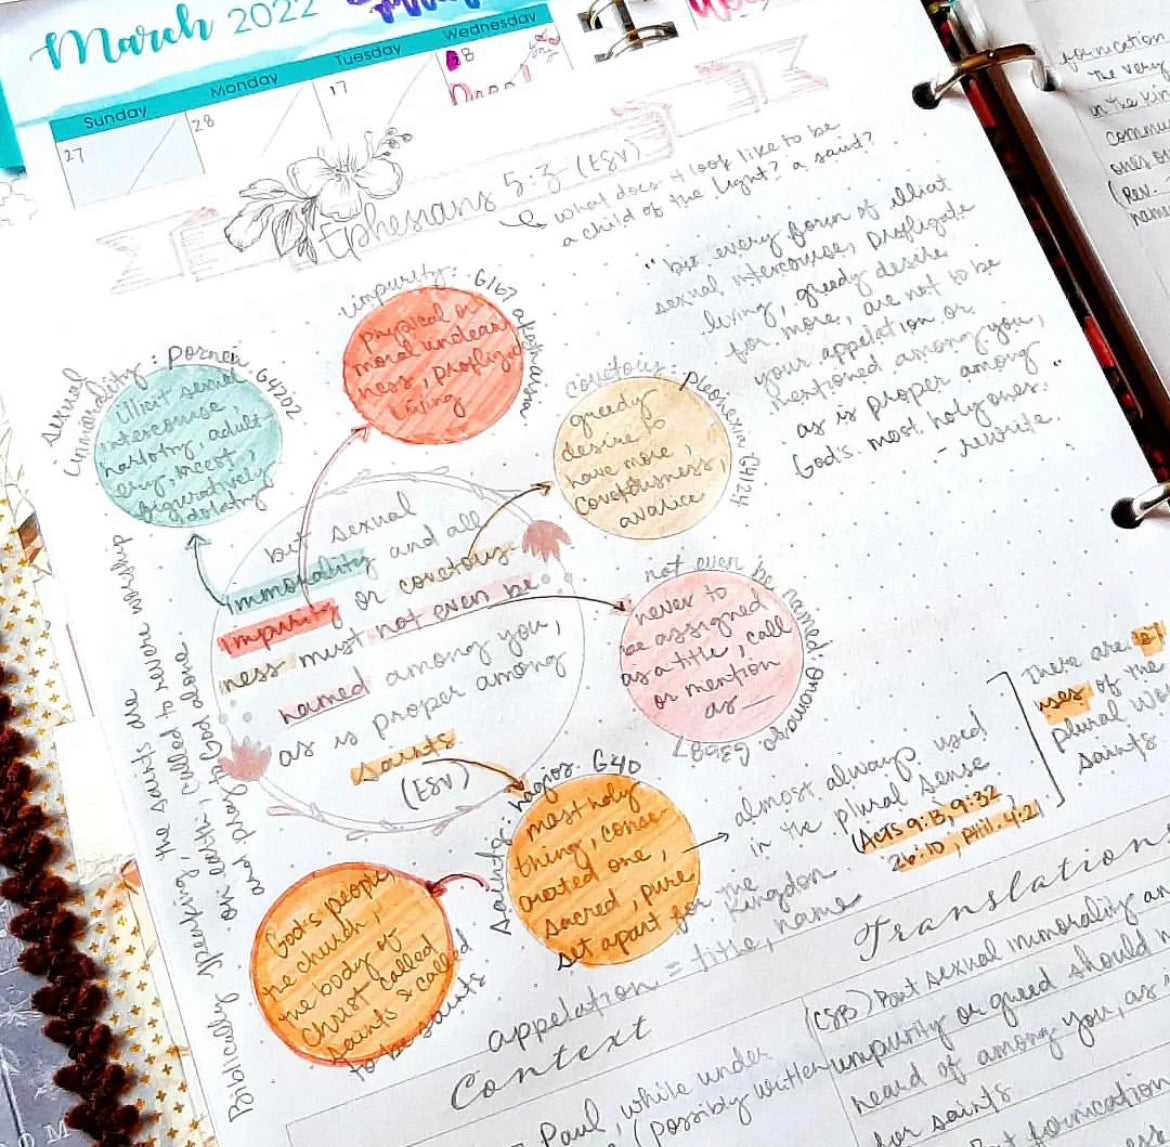 March 2022
Sunday
Monday
Tuesday
Wednesday
27
28
17
Ephesians 5:3 (ESV)
what does it look like to be
a child of the light? a saint?
"but every form of illicit
sexual intercourse, profligate
living, greedy desire
for more, are not to be
your appelation or
mentioned among you,
as is proper among
God's most holy ones."
- rewrite.
impurity: G167 akatharsia
physical or
moral unclean
ness, profligate
living
sexual
immorality: porneia G4202
illicit sexual
intercourse,
harlotry, adult
ery, incest,
figuratively
idolatry
covetous: pleonexia G4124
greedy
desire to
have more,
covetousness,
avarice
but sexual
immorality and all
impurity or covetous-
ness must not even be
named among you,
as is proper among
saints
(ESV)
not even be named: onomazo G3687
never to
be assigned
as a title, call
or mention
as __
saints: hagios. G40
most holy
thing, conse-
crated one,
sacred, pure
set apart for the
kingdom.
almost always used
in the plural sense
(Acts 9:13, 9:32,
26:10, Phil. 4:21
There are 61
uses of the
plural
saints
God's people,
the church,
the body of
Christ called
saints & called
to be saints
Biblically speaking, the saints are
on earth, called to revere, worship
and pray to God alone.
appelation = title, name
Context
Paul, while under
(possibly written
Translation
(CSB) But sexual immorality an
impurity or greed should
heard of among you, as
for saints
But fornication
fornication
the very
in the kin
commu
(Rev.
nam